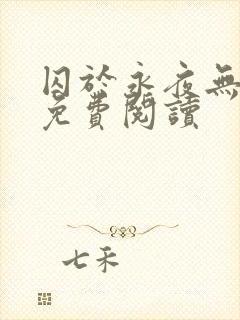 囚於永夜無
免費閱讀
七禾